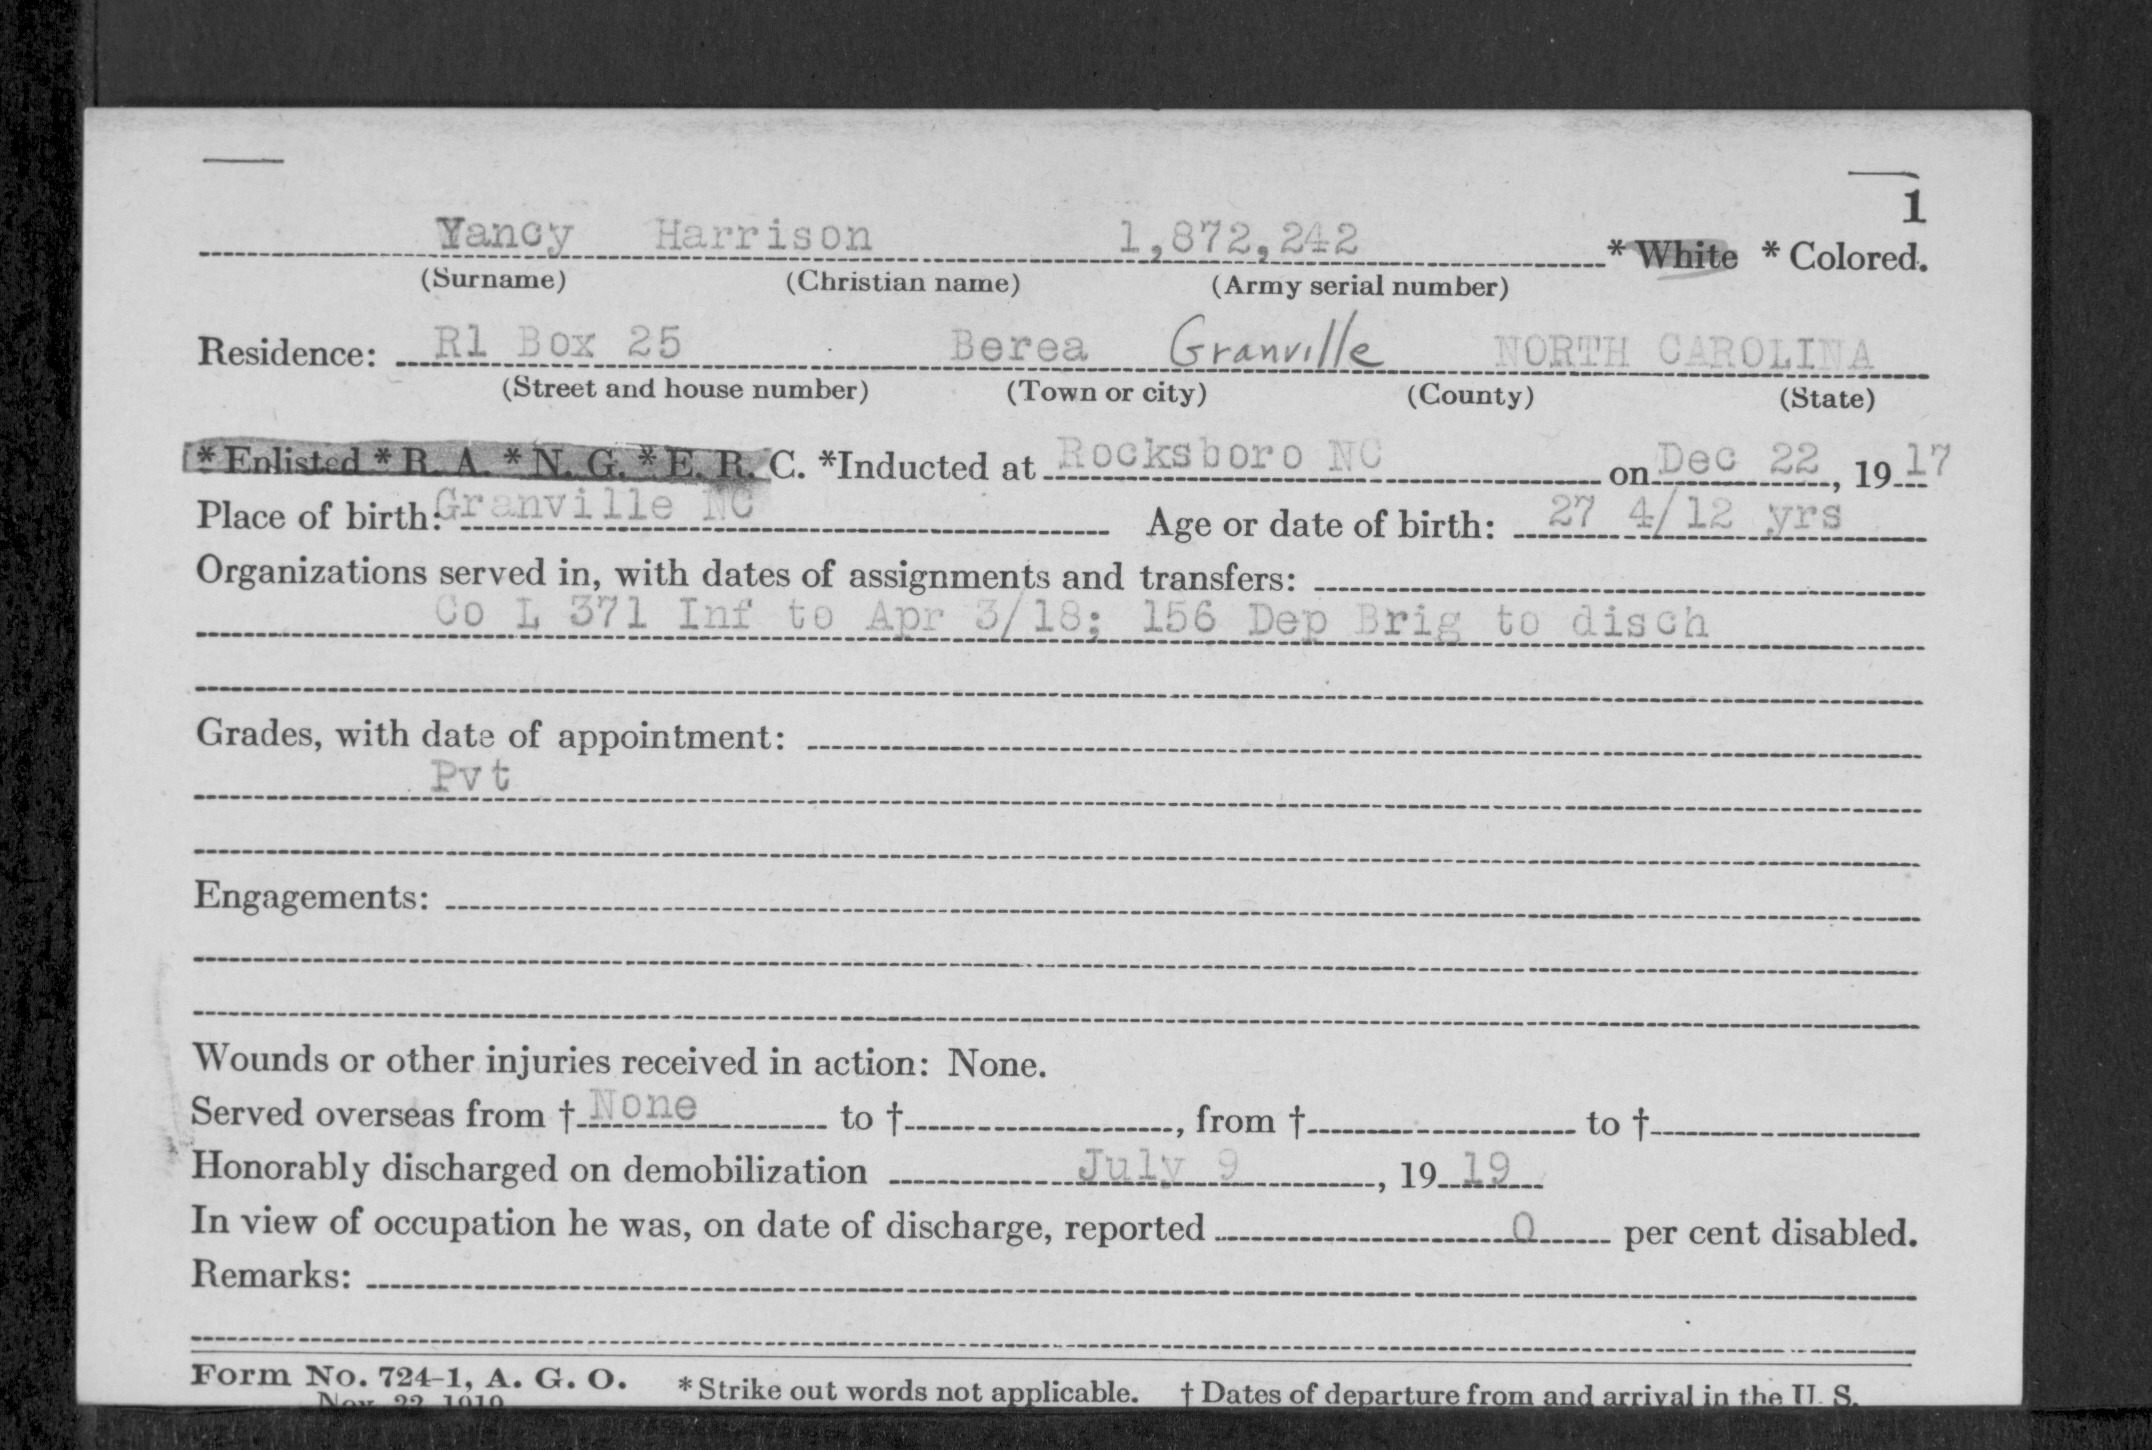 1
Yancy Harrison 1,872,242 * White * Colored.
(Surname) (Christian name) (Army serial number)
Residence: R1 Box 25 Berea Granville NORTH CAROLINA
(Street and house number) (Town or city) (County) (State)
*Enlisted *R. A. *N. G. *E. R. C. *Inducted at Rocksboro NC on Dec 22, 1917
Place of birth: Granville NC Age or date of birth: 27 4/12 yrs
Organizations served in, with dates of assignments and transfers:
Co L 371 Inf to Apr 3/18; 156 Dep Brig to disch
Grades, with date of appointment:
Pvt
Engagements:
Wounds or other injuries received in action: None.
Served overseas from † None to †, from † to †
Honorably discharged on demobilization July 9, 1919
In view of occupation he was, on date of discharge, reported 0 per cent disabled.
Remarks:
Form No. 724-1, A. G. O. *Strike out words not applicable. † Dates of departure from and arrival in the U. S.
Nov. 22 1919